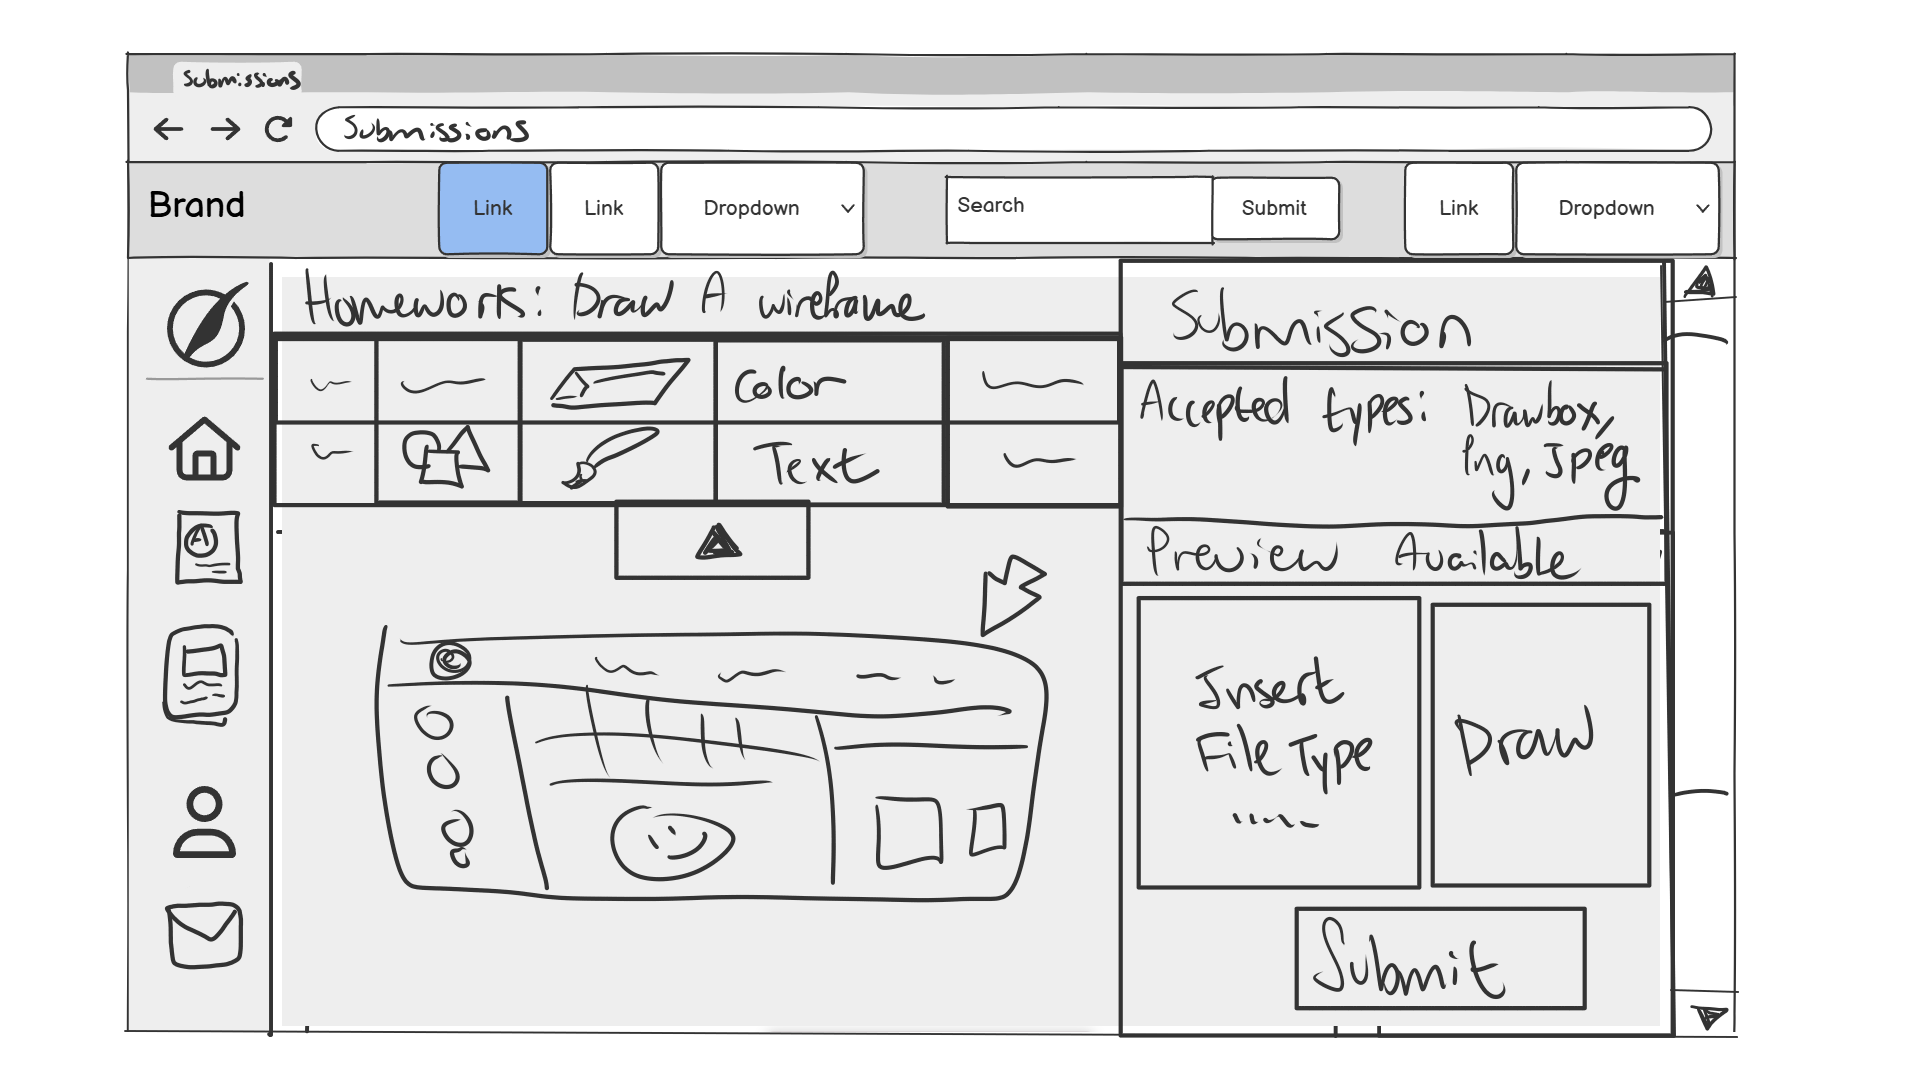 Submissions
Submissions
Brand
Link
Link
Dropdown
Search
Submit
Link
Dropdown
Homework: Draw A wireframe
Color
Text
A
Submission
Accepted types: Drawbox,
Png, Jpeg
Preview Available
Insert
File Type
Draw
Submit